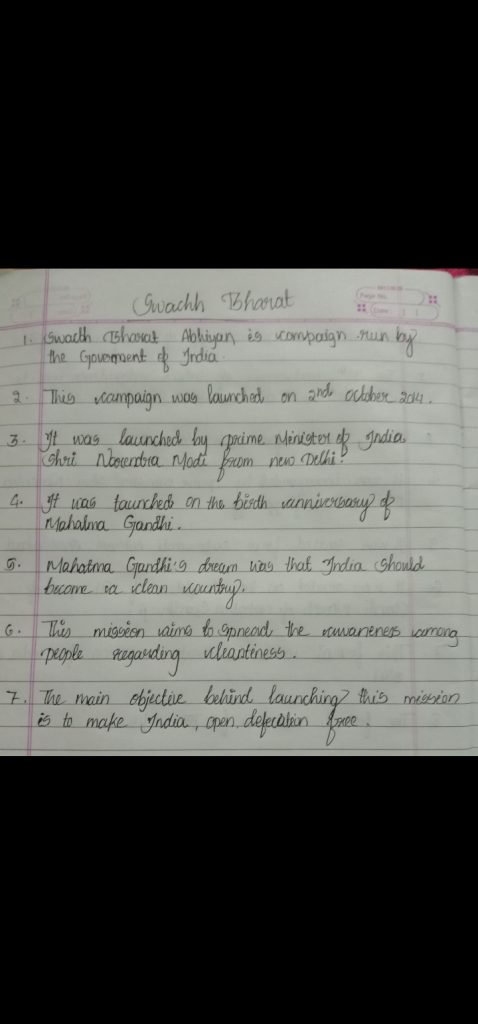 Page No.
Date :
Swachh Bharat
1. Swachh Bharat Abhiyan is compaign run by
the Goverment of India.
2. This campaign was launched on 2nd October 2014.
3. It was launched by prime Minister of India
Shri Narendra Modi from new Delhi.
4. It was launched on the birth anniversary of
Mahatma Gandhi.
5. Mahatma Gandhi's dream was that India should
become a clean country.
6. This mission aims to spread the awareness among
people regarding cleanliness.
7. The main objective behind launching this mission
is to make India, open, defecation free.